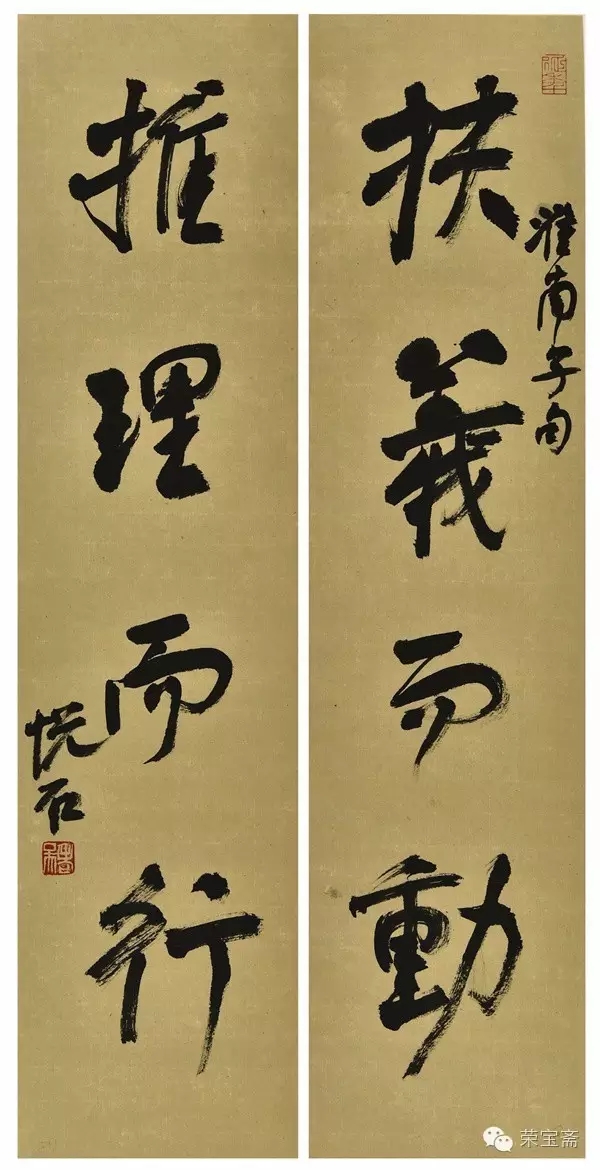 扶義而動
淮南子句
推理而行
悅石
荣宝斋